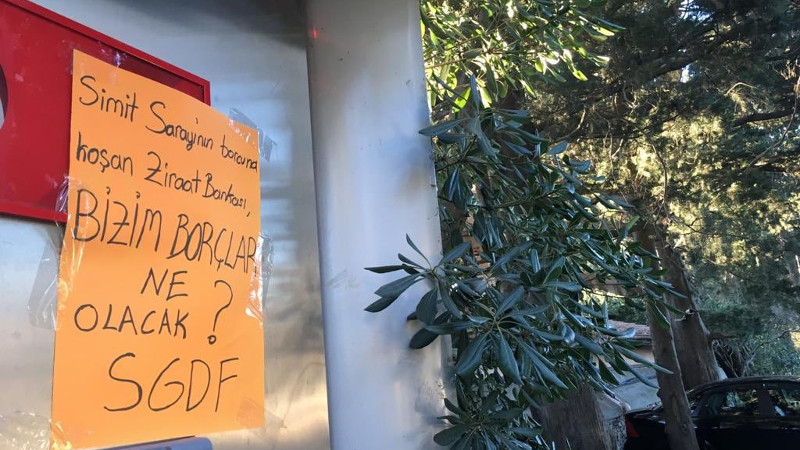 Simit Sarayı'nın borcuna
koşan Ziraat Bankası,
BİZİM BORÇLAR
NE
OLACAK ?
SGDF